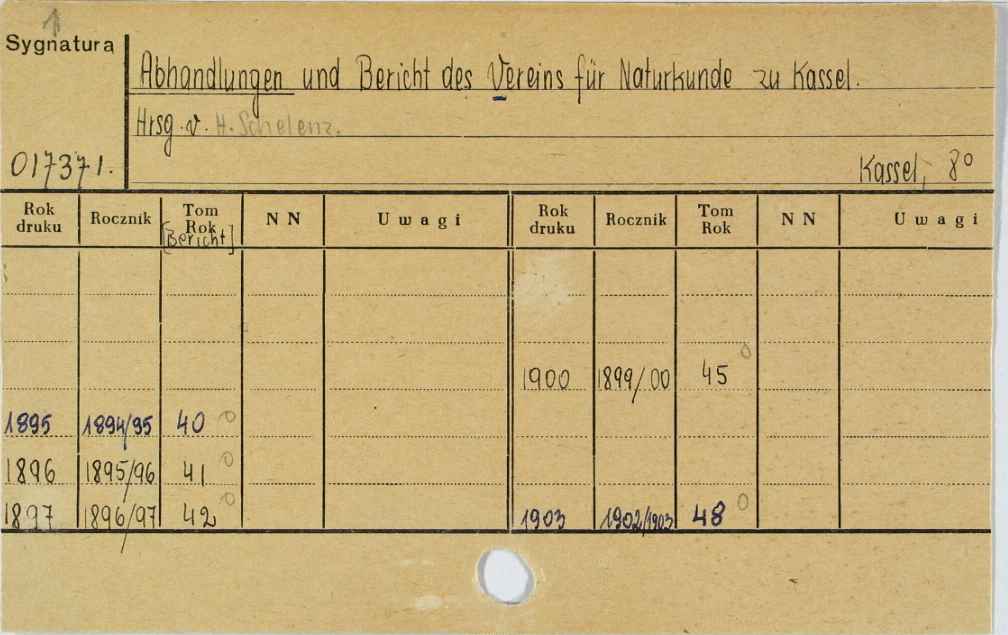 Sygnatura
Abhandlungen und Bericht des Vereins für Naturkunde zu Kassel.
Hrsg. v. H. Schelenz.
017371.
Kassel, 8°
Rok druku Rocznik Tom Rok [Bericht] NN Uwagi Rok druku Rocznik Tom Rok NN Uwagi
1900 1899/00 45 0
1895 1894/95 40 0
1896 1895/96 41 0
1897 1896/97 42 0 1903 1902/1903 48 0